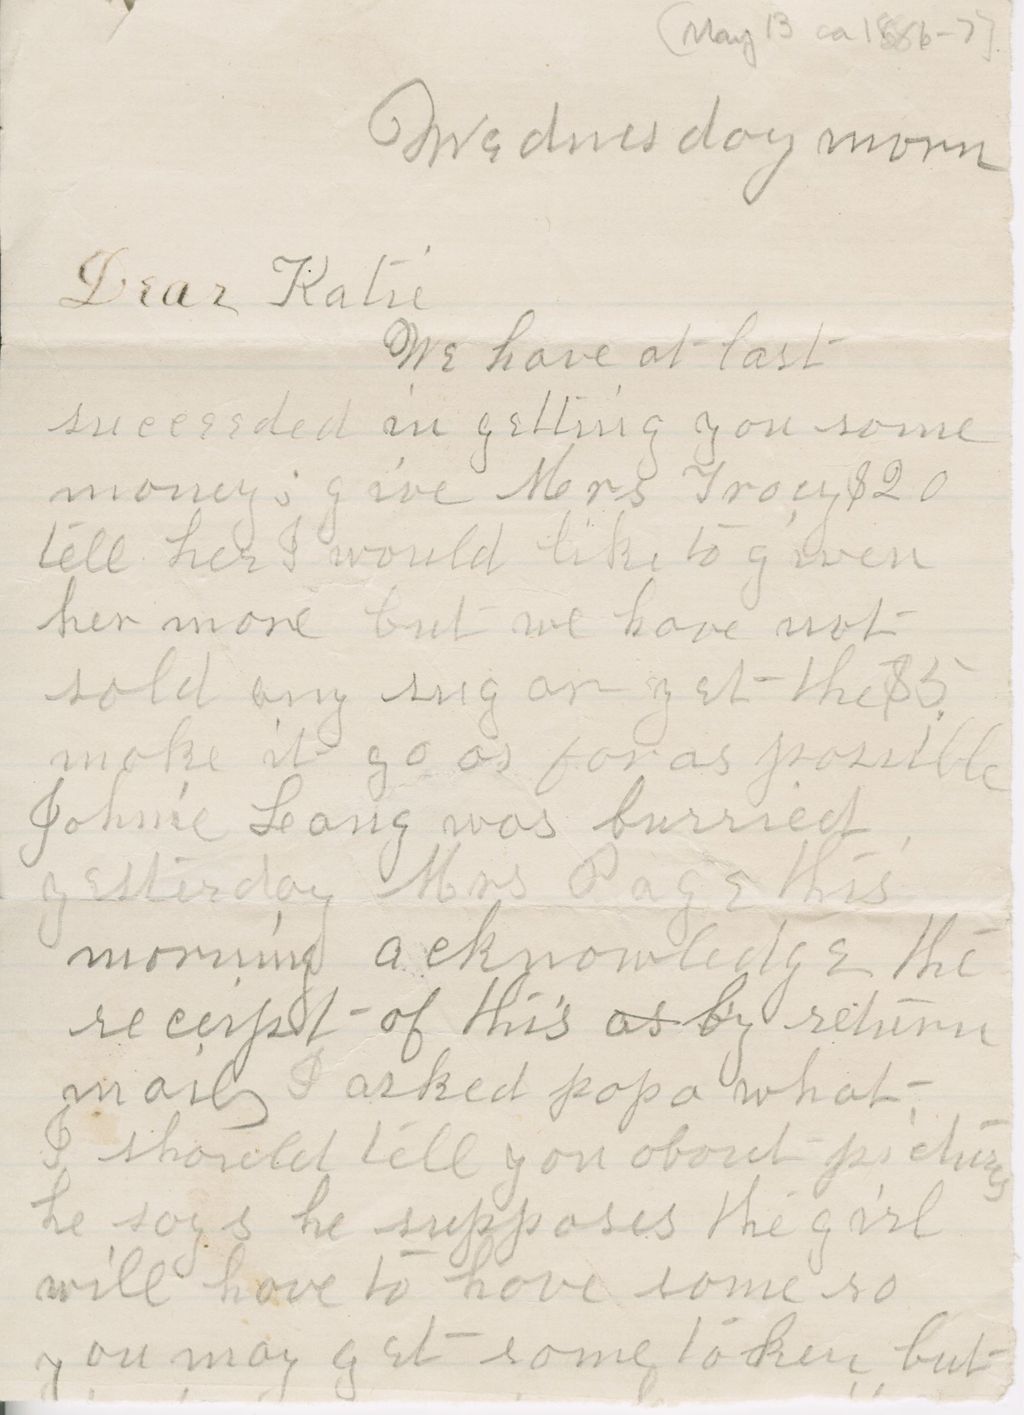 (May 13 ca 1886-7)
Wednesday morn
Dear Katie
We have at last
succeeded in getting you some
money; give Mrs Tracy $20
tell her I would like to given
her more but we have not
sold any sugar yet the $5
make it go as far as possible
Johnie Lang was burried
yesterday Mrs Page this
morning acknowledge the
receipt of this as by return
mail I asked papa what
I should tell you about pictures
he says he supposes the girl
will have to have some so
you may get some taken but